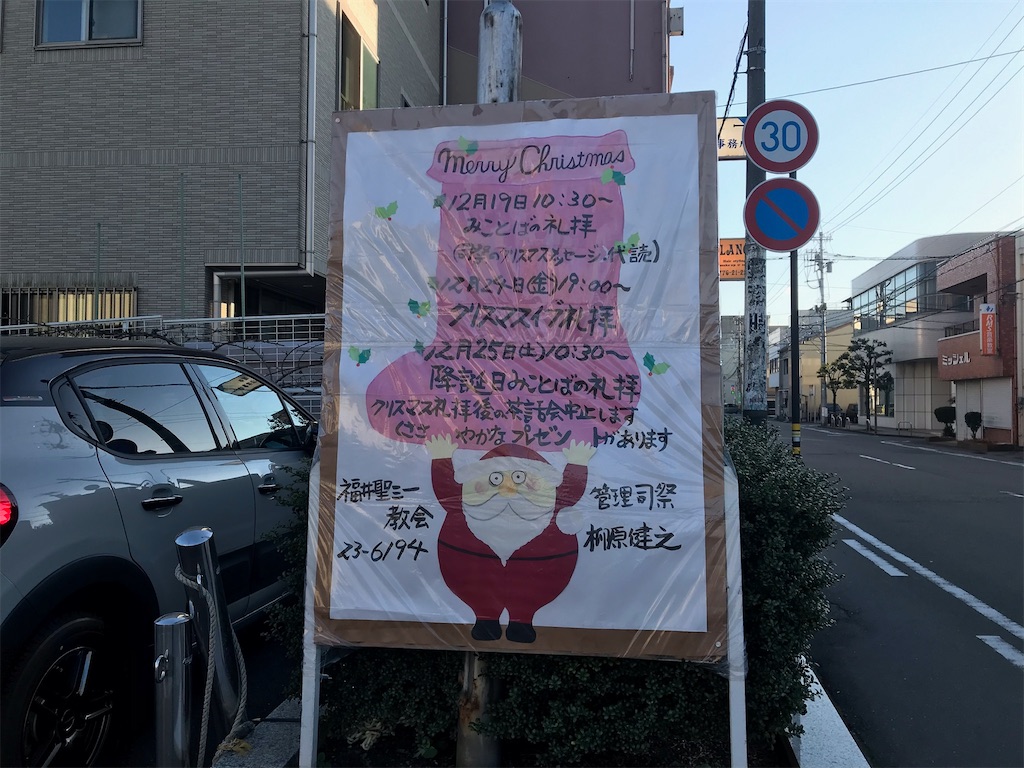 Merry Christmas
12月19日10:30〜
みことばの礼拝
(司祭のクリスマスメッセージを代読)
12月24日(金)19:00〜
クリスマスイブ礼拝
12月25日(土)10:30〜
降誕日みことばの礼拝
クリスマス礼拝後の茶話会中止します
(ささやかなプレゼントがあります
福井聖三一
教会
23-6194
管理司祭
柳原健之
30
事務
ミッシェル